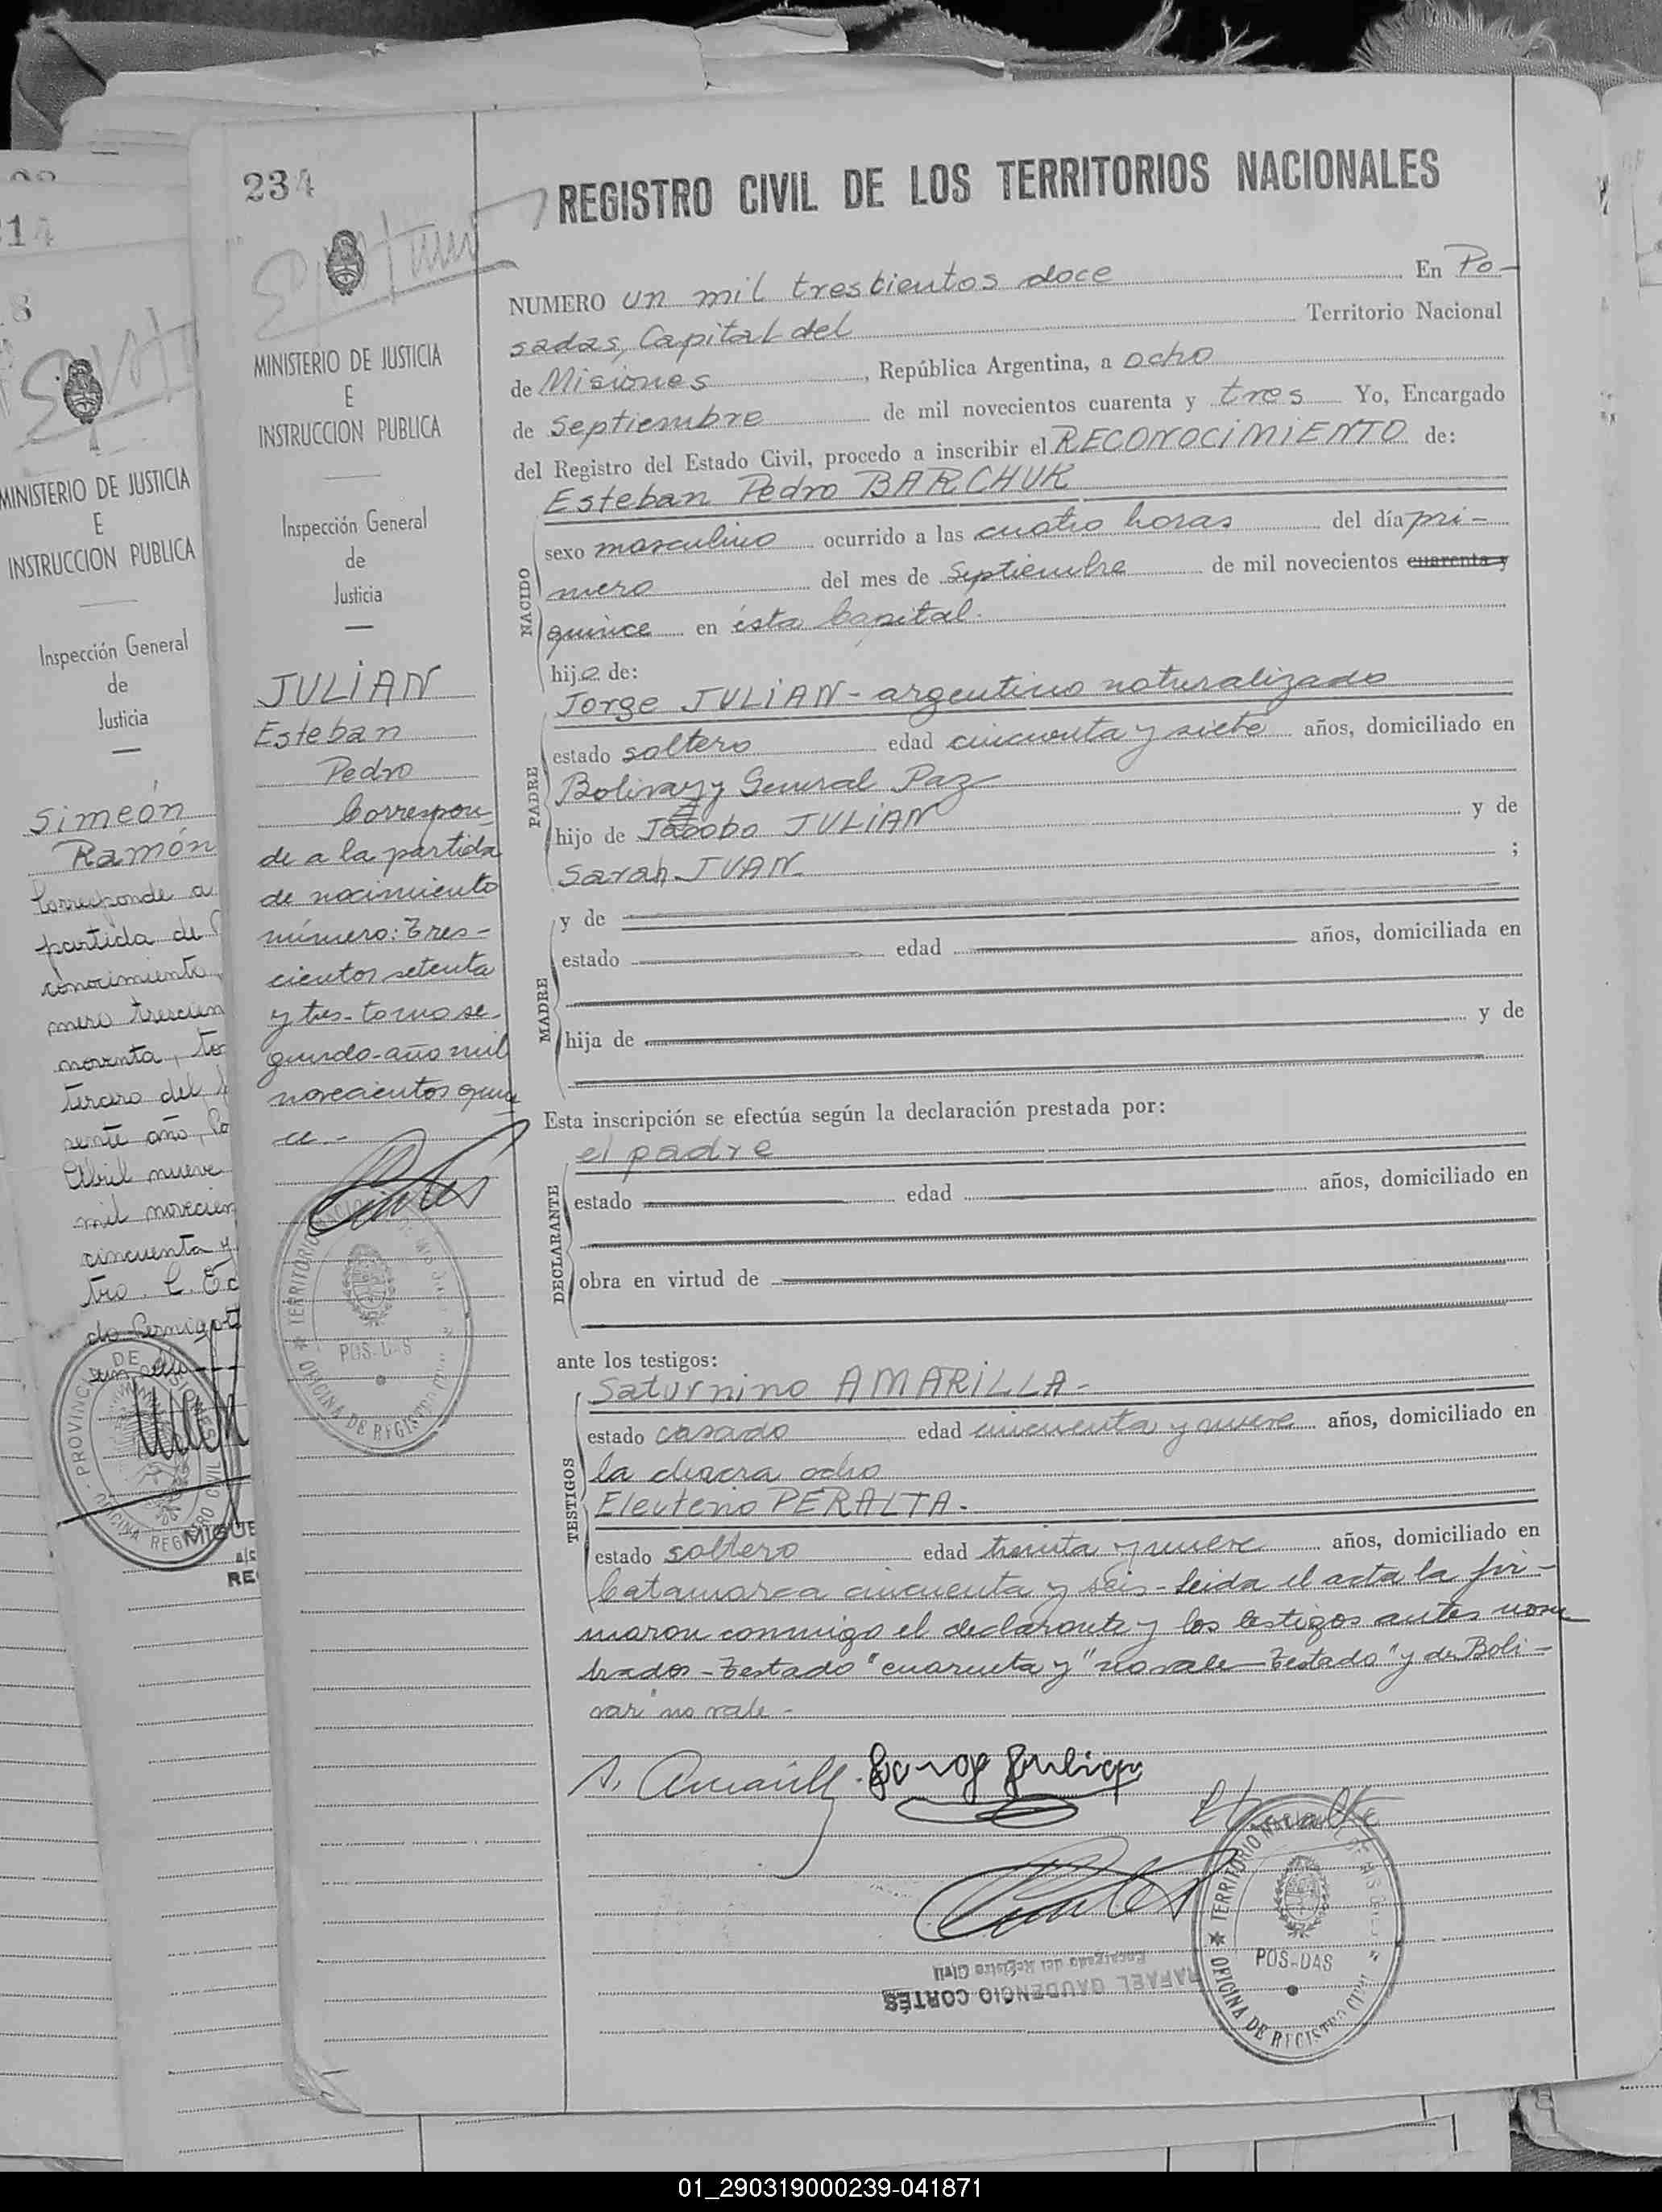 234
REGISTRO CIVIL DE LOS TERRITORIOS NACIONALES
MINISTERIO DE JUSTICIA
E
INSTRUCCION PUBLICA
Inspección General
de
Justicia
JULIAN
Esteban
Pedro
Correspon
de a la partida
de nacimiento
número: Tres-
cientos setenta
y tres-tomo se-
gundo-año mil
novecientos quin
ce.-
NUMERO un mil trescientos doce En Po-
sadas, Capital del Territorio Nacional
de Misiones, República Argentina, a ocho
de Septiembre de mil novecientos cuarenta y tres Yo, Encargado
del Registro del Estado Civil, procedo a inscribir el RECONOCIMIENTO de:
Esteban Pedro BARCHUK
NACIDO
sexo masculino ocurrido a las cuatro horas del día pri-
mero del mes de Septiembre de mil novecientos cuarenta y
quince en ésta Capital.
hijo de:
PADRE
Jorge JULIAN - argentino naturalizado
estado soltero edad cincuenta y siete años, domiciliado en
Bolivar y General Paz
hijo de Jacobo JULIAN y de
Sarah JUAN ;
MADRE
y de
estado edad años, domiciliada en
hija de y de
Esta inscripción se efectúa según la declaración prestada por:
DECLARANTE
el padre
estado edad años, domiciliado en
obra en virtud de
ante los testigos:
TESTIGOS
Saturnino AMARILLA-
estado casado edad cincuenta y nueve años, domiciliado en
la chacra ocho
Eleuterio PERALTA-
estado soltero edad treinta y nueve años, domiciliado en
Catamarca cincuenta y seis - Leida el acta la fir-
maron conmigo el declarante y los testigos antes nom
brados - Testado "cuarenta y" no vale - Testado "y de Boli-
var" no vale -
S. Amarilla Jorge Julian
RAFAEL GAUDENCIO CORTÉS
Encargado del Registro Civil
TERRITORIO NACIONAL DE MISIONES
POSADAS
OFICINA DE REGISTRO CIVIL
TERRITORIO NACIONAL DE MISIONES
POSADAS
OFICINA DE REGISTRO CIVIL
14
8
MINISTERIO DE JUSTICIA
E
INSTRUCCION PUBLICA
Inspección General
de
Justicia
Simeón
Ramón
Corresponde a
partida de
conocimiento
mero trescien
noventa, to
tercero del
sente año, Po
Abril nueve
mil novecien
cincuenta y
tro. C. Ed
do Pernigot
PROVINCIA DE MISIONES
OFICINA REGISTRO CIVIL
MIGUE
01_290319000239-041871